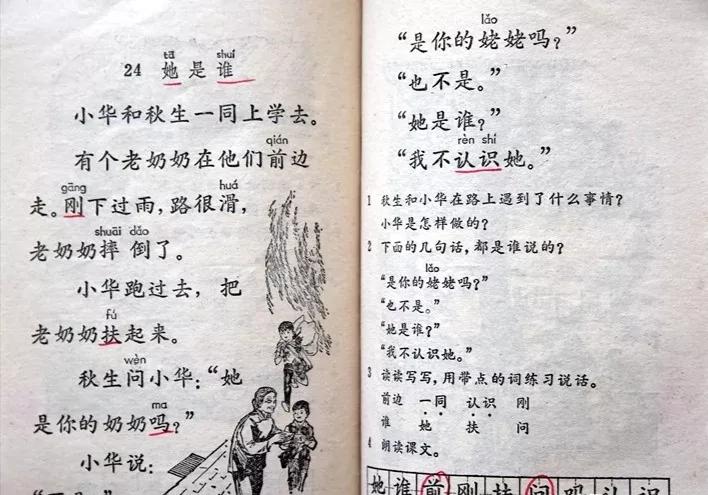 tā shuí
24 她是谁
小华和秋生一同上学去。
qián
有个老奶奶在他们前边
gāng huá
走。刚下过雨，路很滑，
shuāi dǎo
老奶奶摔倒了。
小华跑过去，把
fú
老奶奶扶起来。
wèn
秋生问小华：“她
ma
是你的奶奶吗？”
小华说：
lǎo
“是你的姥姥吗？”
“也不是。”
“她是谁？”
rèn shi
“我不认识她。”
1 秋生和小华在路上遇到了什么事情？
小华是怎样做的？
2 下面的几句话，都是谁说的？
lǎo
“是你的姥姥吗？”
“也不是。”
“她是谁？”
“我不认识她。”
3 读读写写，用带点的词练习说话。
前边 一同 认识 刚
谁 她 扶 问
4 朗读课文。
她 谁 前 刚 扶 问 吗 认 识